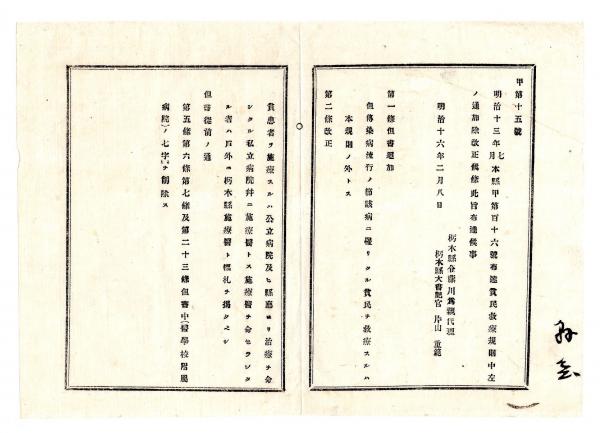 甲第十五號
明治十三年七月本縣甲第百十六號布達貧民救療規則中左
ノ通加除改正候條此旨布達候事
栃木縣令藤川爲親代理
明治十六年二月八日 栃木縣大書記官 片山重範
第一條但書追加
但傳染病流行ノ節該病ニ罹リタル貧民ヲ救療スルハ
本規則ノ外トス
第二條改正
貧患者ヲ施療スルハ公立病院及ヒ縣廳ヨリ治療ヲ命
シタル私立病院幷ニ施療醫トス施療醫ヲ命セラレタ
ル者ハ戸外ニ栃木縣施療醫ト標札ヲ揭クヘシ
但書從前ノ通
第五條第六條第七條及第二十三條但書中(醫學校附屬
病院)ノ七字ヲ削除ス